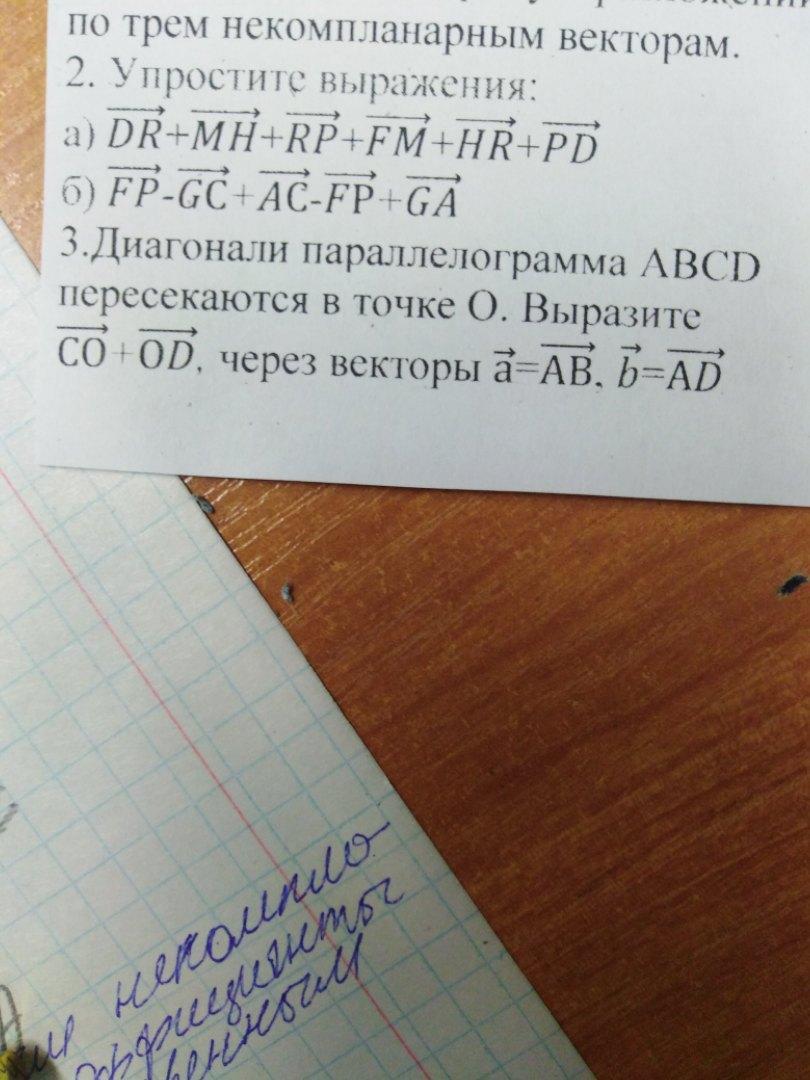 по трем некомпланарным векторам.
2. Упростите выражения:
а) \overrightarrow{DR}+\overrightarrow{MH}+\overrightarrow{RP}+\overrightarrow{FM}+\overrightarrow{HR}+\overrightarrow{PD}
б) \overrightarrow{FP}-\overrightarrow{GC}+\overrightarrow{AC}-\overrightarrow{FP}+\overrightarrow{GA}
3.Диагонали параллелограмма ABCD
пересекаются в точке О. Выразите
\overrightarrow{CO}+\overrightarrow{OD}, через векторы \vec{a}=\overrightarrow{AB}, \vec{b}=\overrightarrow{AD}
некомпло